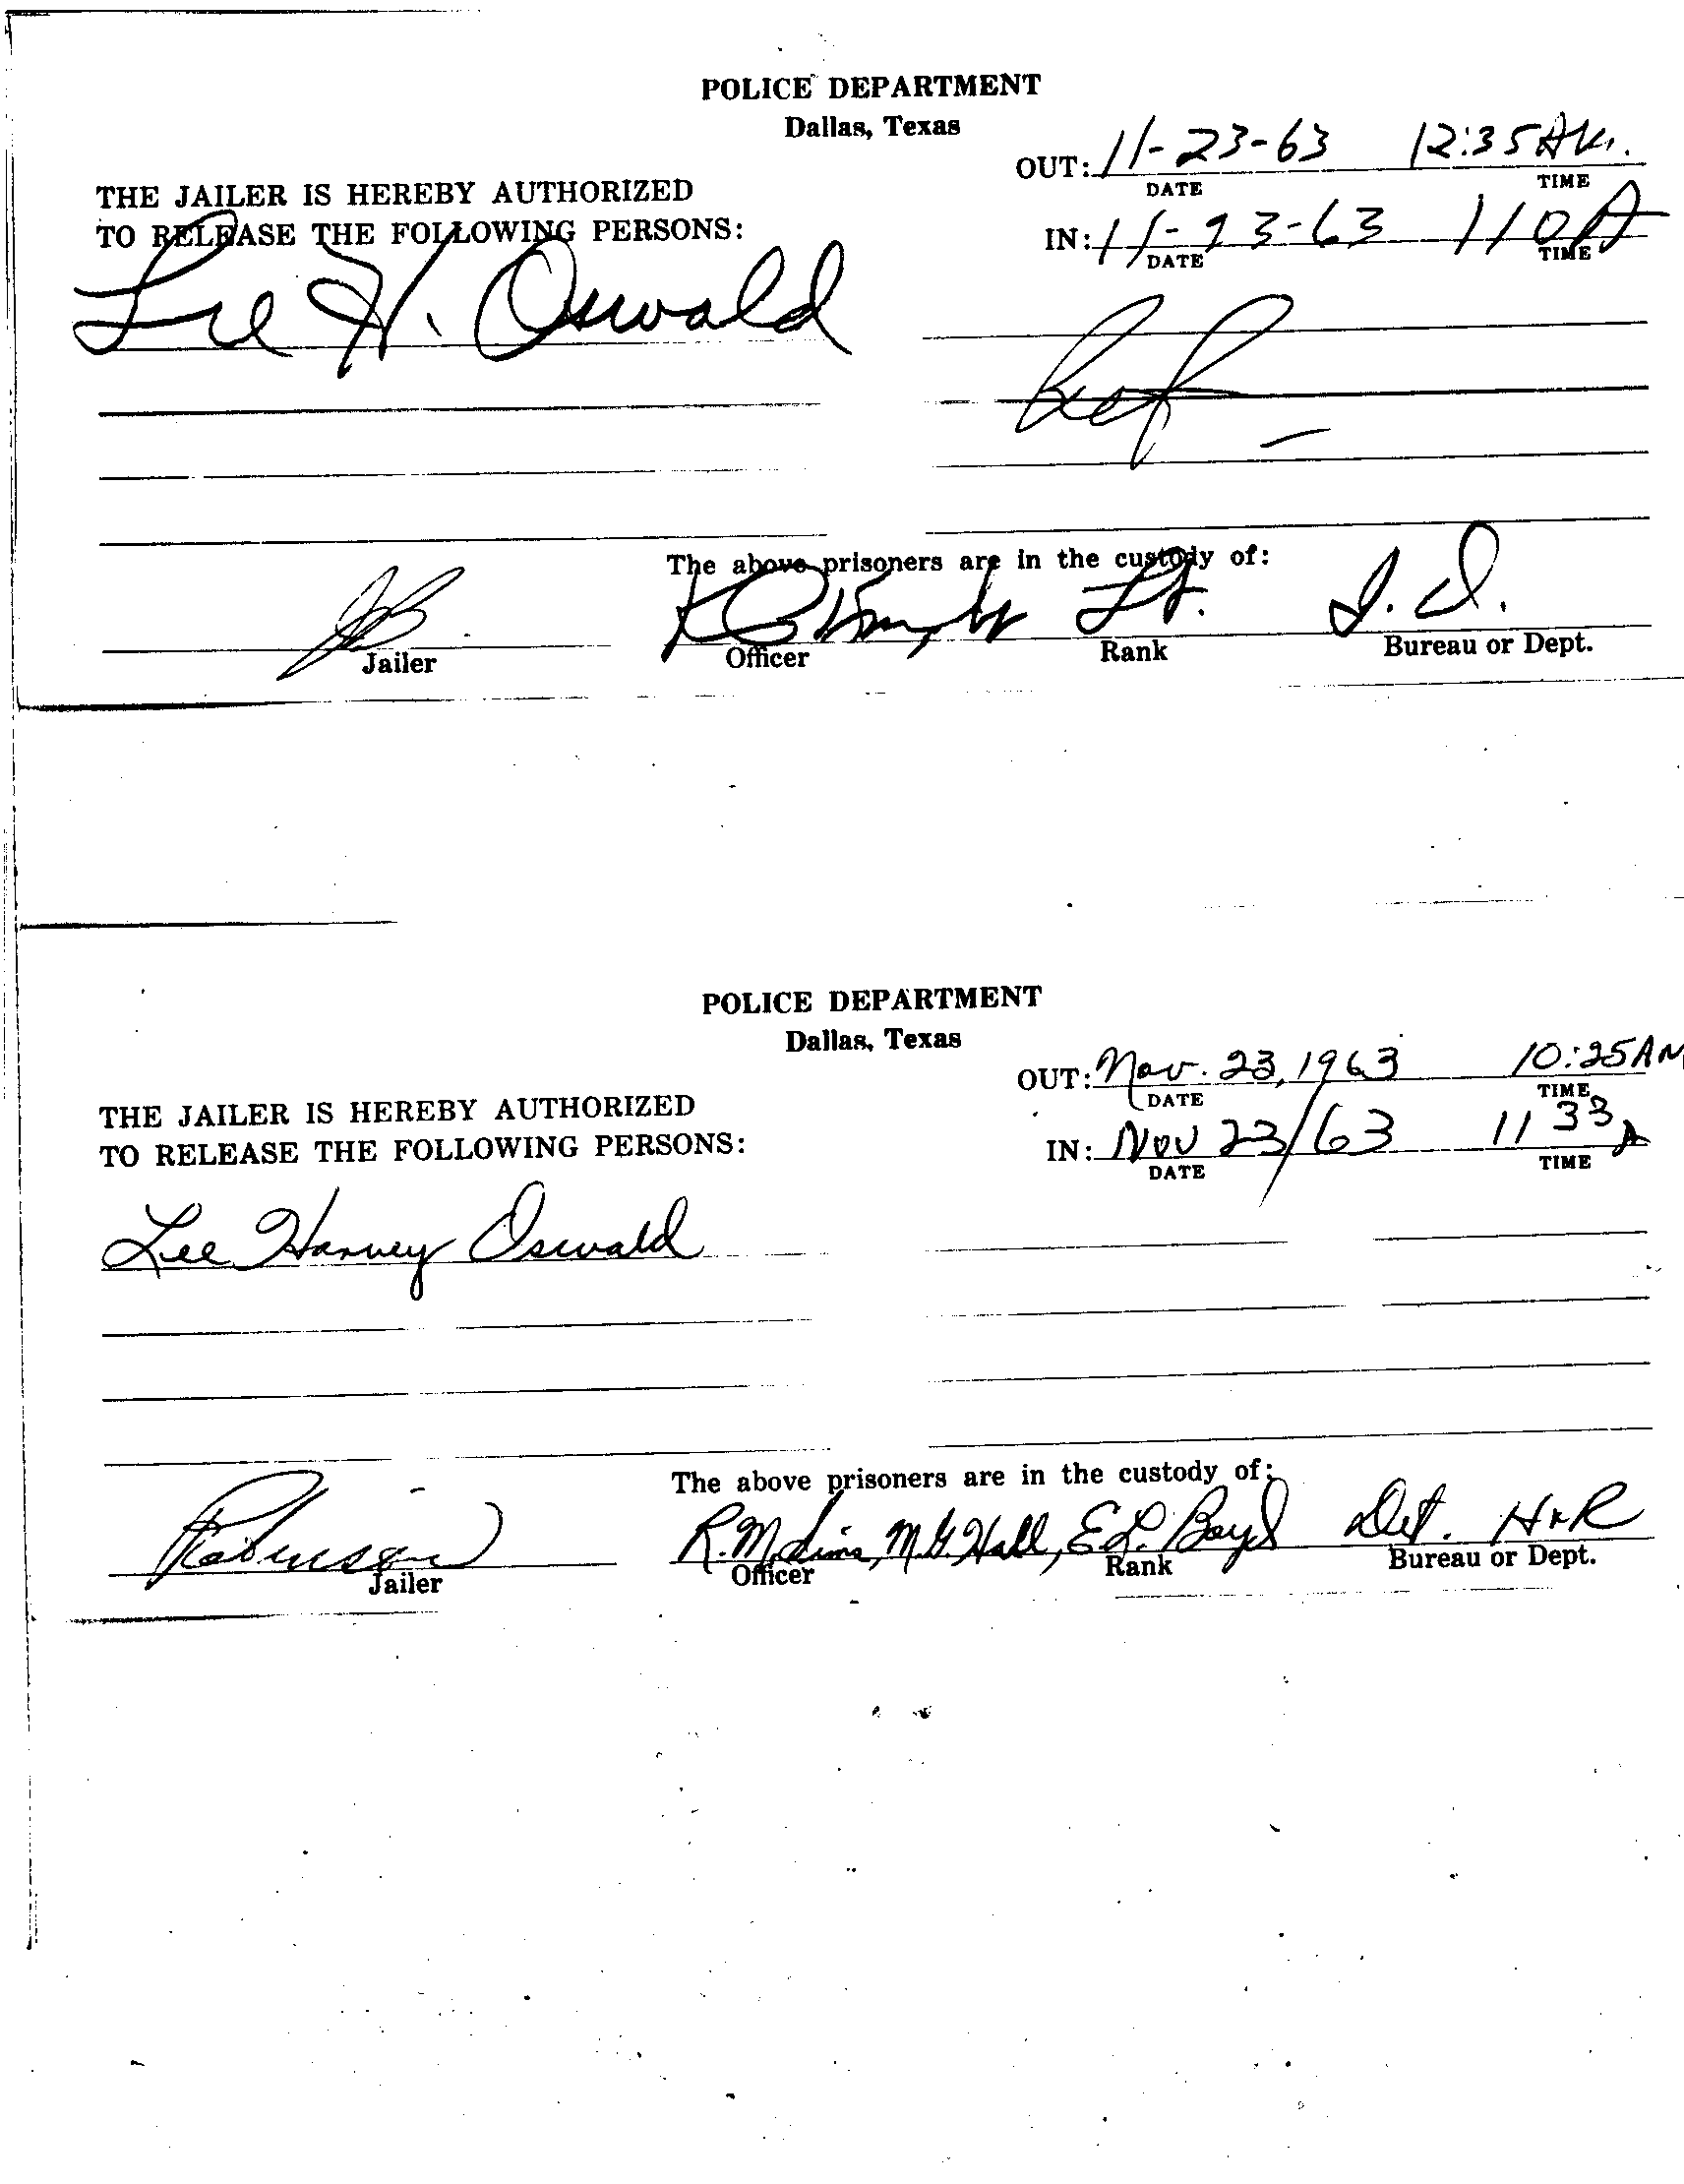 POLICE DEPARTMENT
Dallas, Texas
OUT: 11-23-63 12:35 AM.
DATE TIME
THE JAILER IS HEREBY AUTHORIZED
TO RELEASE THE FOLLOWING PERSONS:
IN: 11-23-63 110 A
DATE TIME
Lee H. Oswald
The above prisoners are in the custody of:
Lt. I.D.
Jailer Officer Rank Bureau or Dept.
POLICE DEPARTMENT
Dallas, Texas
OUT: Nov. 23, 1963 10:25 AM
DATE TIME
THE JAILER IS HEREBY AUTHORIZED
TO RELEASE THE FOLLOWING PERSONS:
IN: Nov 23/63 11 33 A
DATE TIME
Lee Harvey Oswald
The above prisoners are in the custody of:
Robinson R.M. Sims, M.G. Hall, E.L. Boyd Det. H+R
Jailer Officer Rank Bureau or Dept.